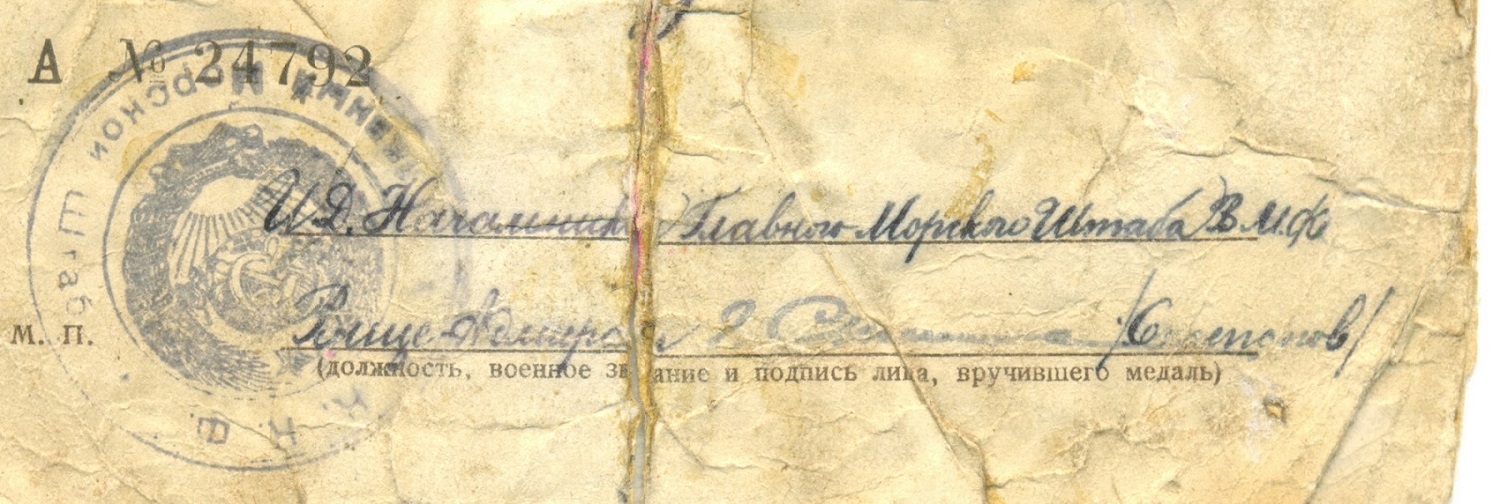 А № 24792
И.Д. Начальника Главного Морского Штаба ВМФ
Вице-Адмирал /Степанов/
М. П.
(должность, военное звание и подпись лица, вручившего медаль)
Морской Штаб